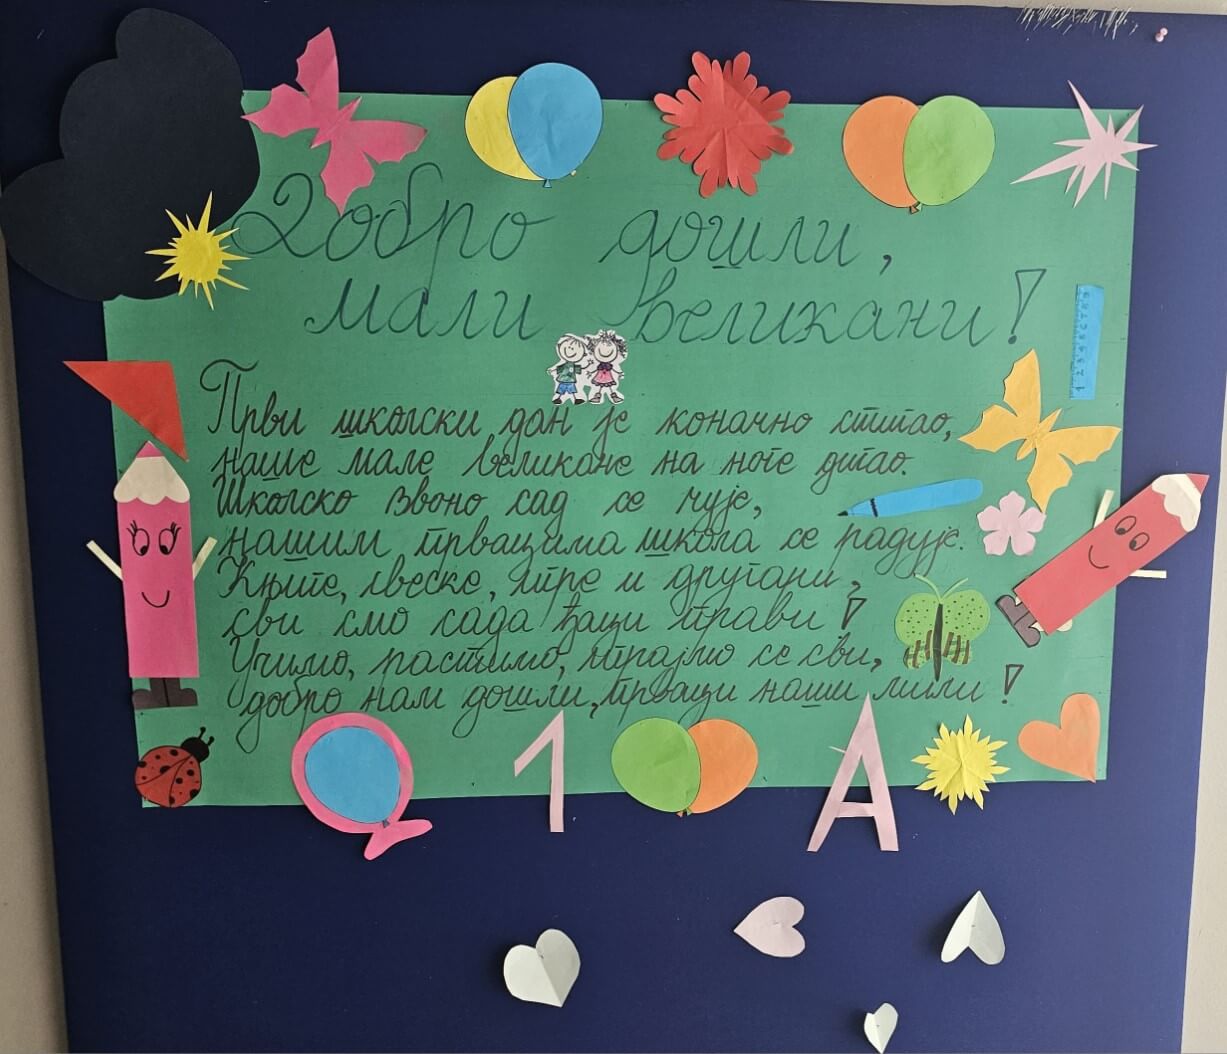 Добро дошли,
мали великани!
Први школски дан је коначно стигао,
наше мале великане на ноге дигао.
Школско звоно сад се чује,
нашим првацима школа се радује.
Књиге, свеске, игре и другари,
сви смо сада ђаци прави!
Учимо, растимо, играјмо се сви,
добро нам дошли, прваци наши мили!
1 А